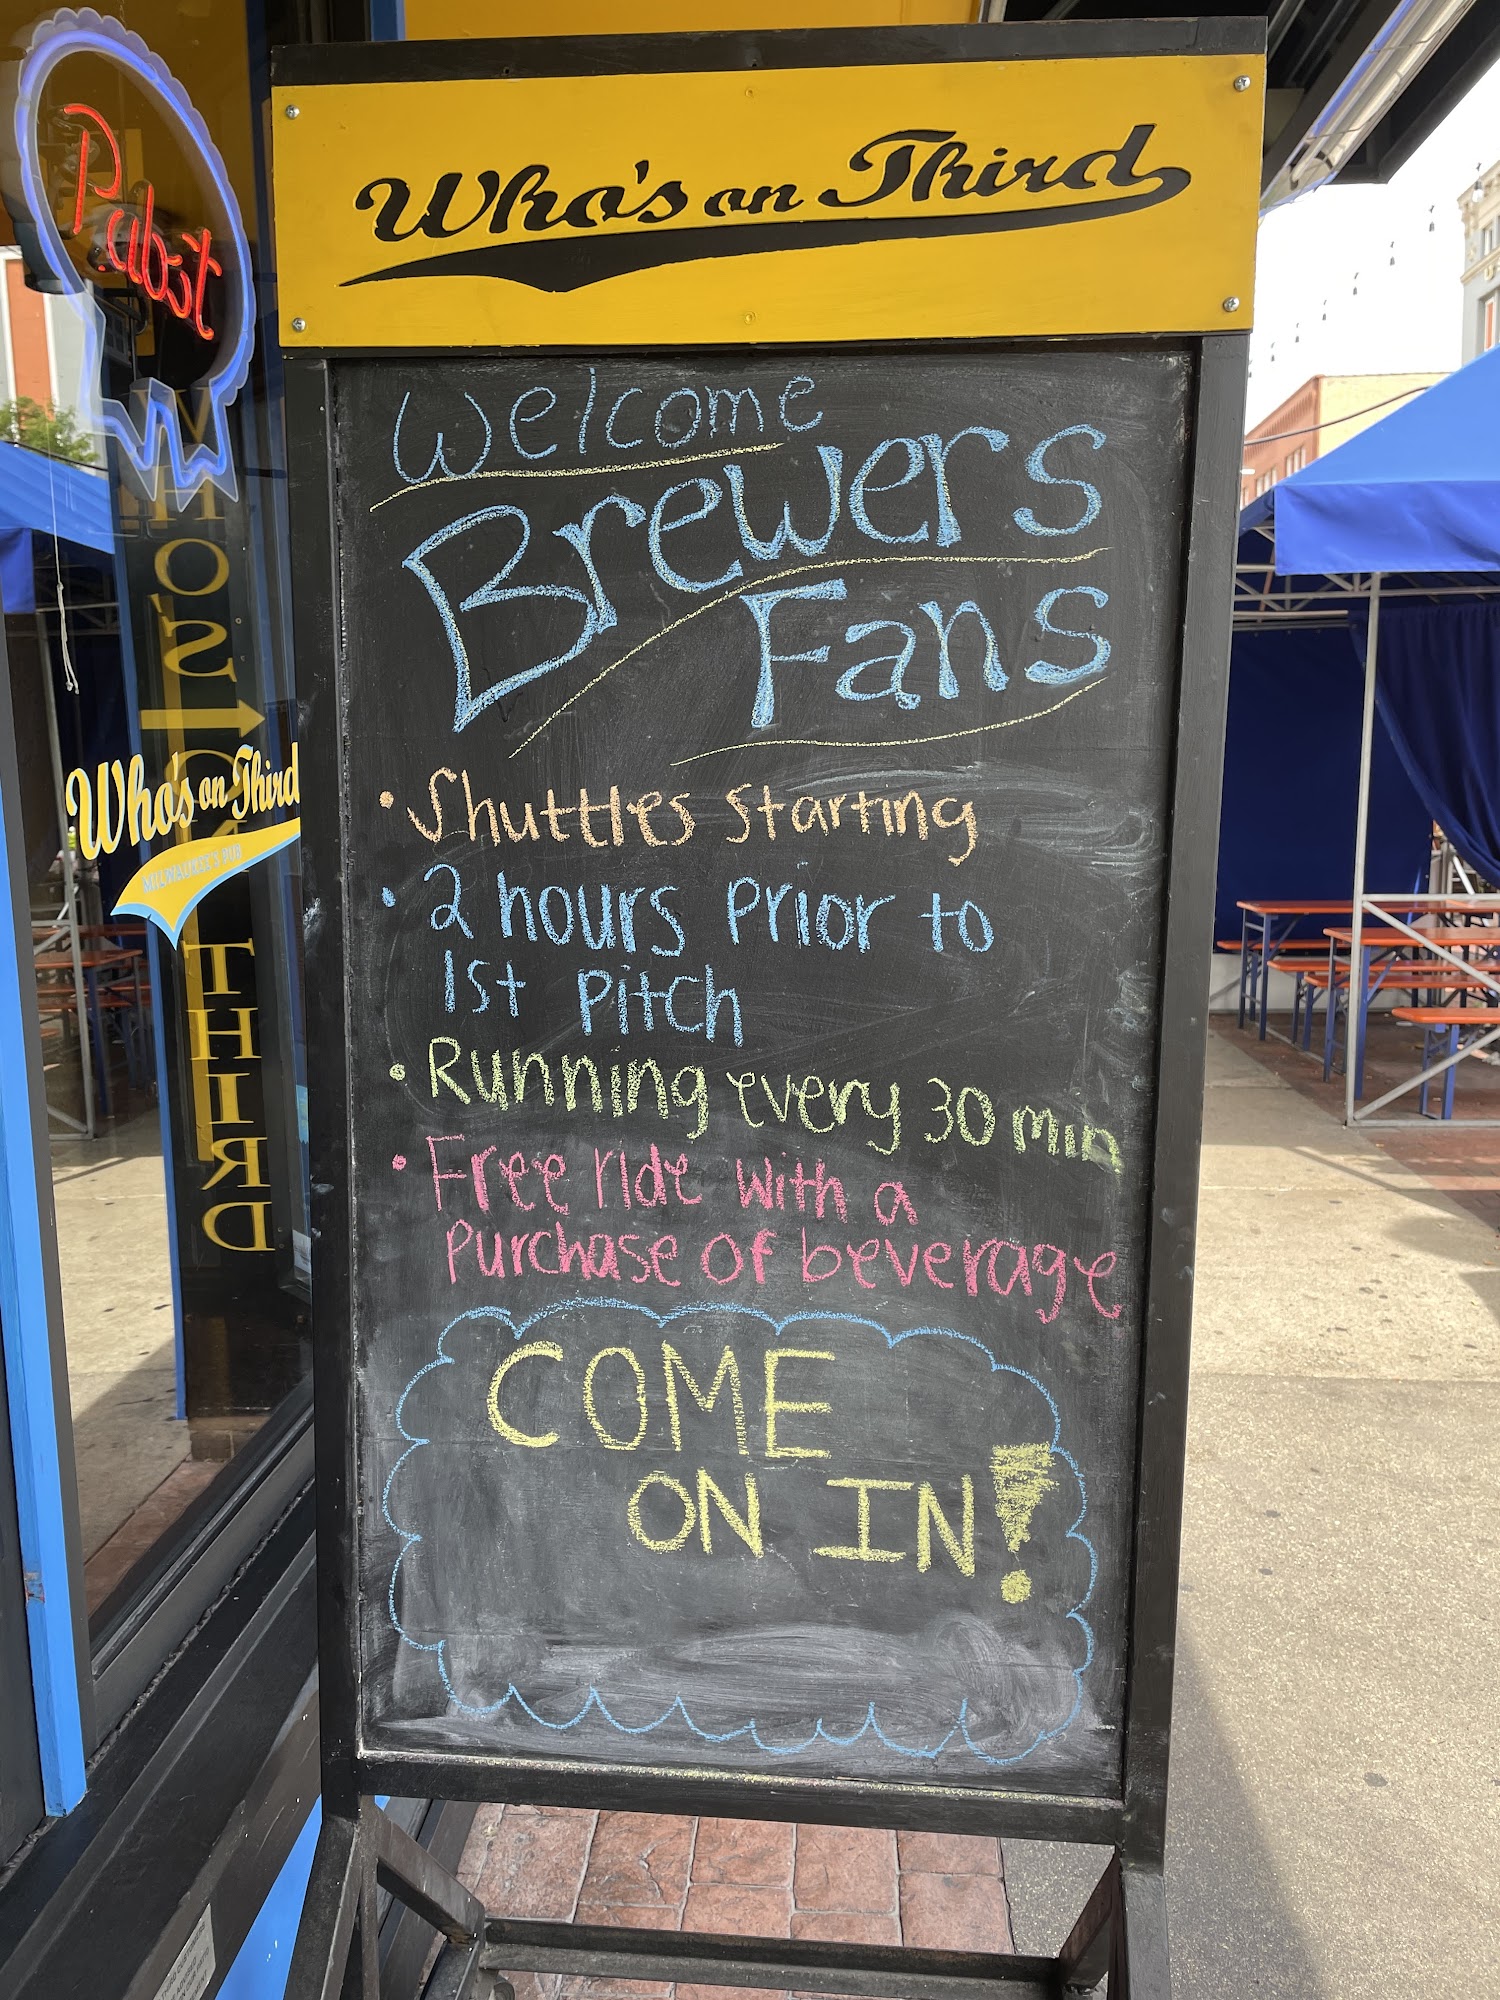 Pabst
Who's on Third
Welcome
Brewers
Fans
• Shuttles starting
• 2 hours prior to
1st pitch
• Running every 30 min
• Free ride with a
purchase of beverage
COME
ON IN!
Who's on Third
MILWAUKEE'S PUB
WHO'S → ON THIRD